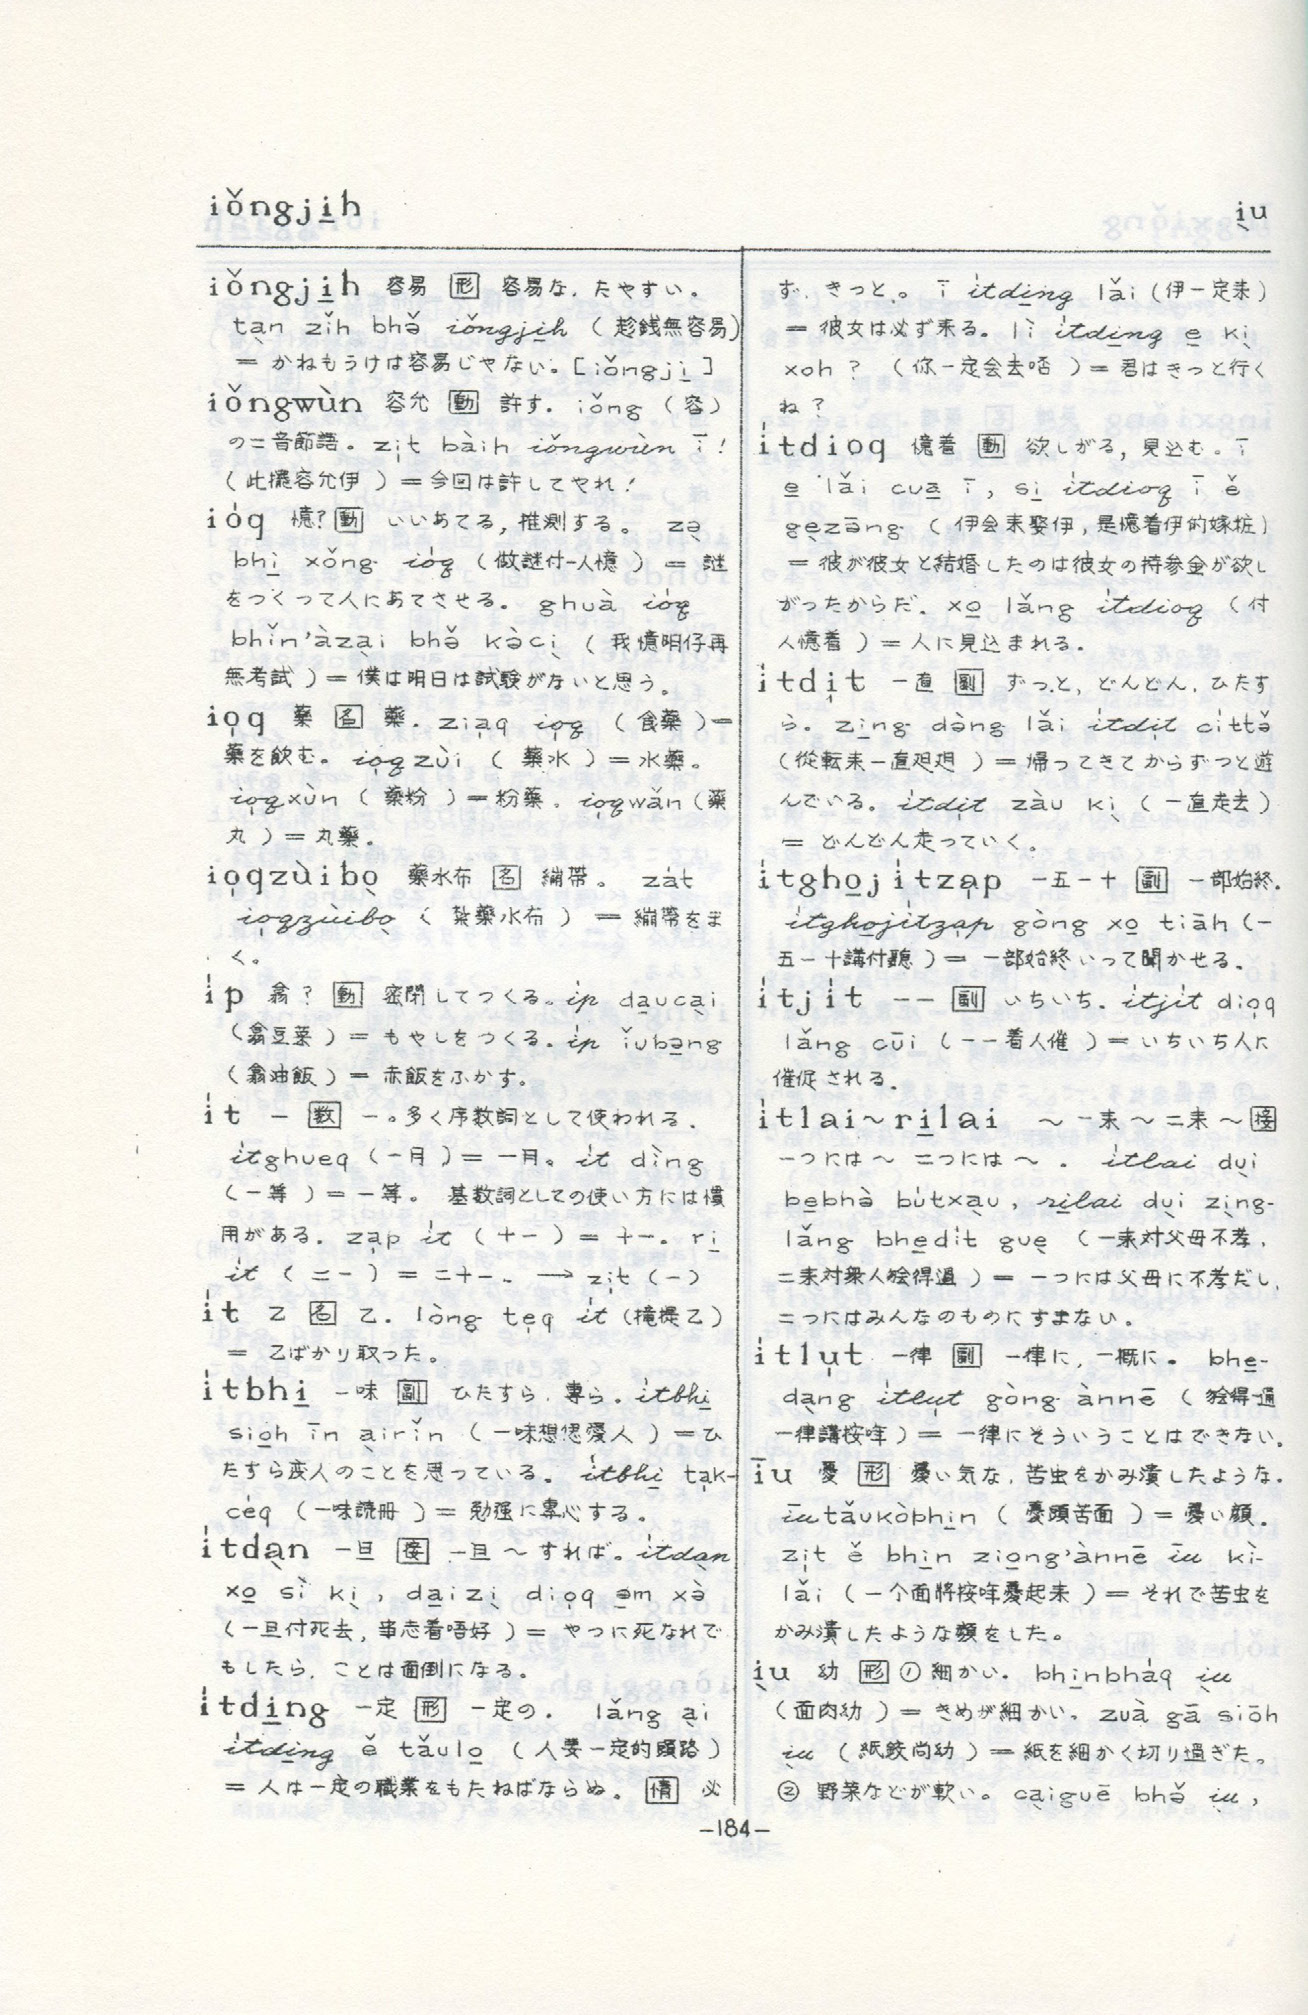 iǒngji̱h
i̖u
iǒngji̱h 容易 形 容易な、たやすい。
ta̖n zǐh bhə̌ iǒngji̱h (趁銭無容易)
= かねもうけは容易じゃない。[iǒngji̱]
iǒngwùn 容允 動 許す。iǒng (容)
の二音節語。zi̩t bàih iǒngwùn ī!
(此擺容允伊) = 今回は許してやれ!
ióq 憶? 動 いいあてる, 推測する。 zə̖
bhi̱ xǒng ióq (做謎付人憶) = 謎
をつくって人にあてさせる。 ghuà ióq
bhǐn'àza̖i bhə̌ kə̀ci̖ (我憶明仔再
無考試) = 僕は明日は試験がないと思う。
io̩q 藥 名 藥. zia̩q io̩q (食藥) =
藥を飲む。io̩qzùi (藥水) = 水藥。
io̩qxùn (藥粉) = 粉藥. io̩qwǎn (藥
丸) = 丸藥。
io̩qzùibo̖ 藥水布 名 繃帯。 zát
io̩qzùibo̖ (紮藥水布) = 繃帯をま
く。
íp 翕? 動 密閉してつくる。íp da̱uca̖i
(翕豆菜) = もやしをつくる. íp ǐubə̱ng
(翕油飯) = 赤飯をふかす。
ít 一 数 一。多く序数詞として使われる.
ítghueq (一月) = 一月。ít dìng
(一等) = 一等。 基数詞としての使い方には慣
用がある. za̩p ít (十一) = 十一。ri̱
ít (二一) = 二十一. → zi̩t (一)
ít 乙 名 乙. lòng te̩q ít (攏提乙)
= 乙ばかり取った。
ítbhi̱ 一味 副 ひたすら, 専ら. ítbhi̱
sio̱h īn a̖irǐn (一味想偲愛人) = ひ
たすら恋人のことを思っている。 ítbhi̱ ta̩k-
céq (一味読冊) = 勉强に專心する。
ítda̖n 一旦 接 一旦〜すれば。ítda̖n
xo̱ sì ki̖, da̱izi̖ dio̩q ə̱m xə̀
(一旦付死去, 事志着唔好) = やつに死なれで
もしたら, ことは面倒になる。
ítdi̱ng 一定 形 一定の. lǎng a̖i
ítdi̱ng ě tǎulo̱ (人要一定的頭路)
= 人は一定の職業をもたねばならぬ。 情 必
ず, きっと。 ī ítdi̱ng lǎi (伊一定来)
= 彼女は必ず来る。lì ítdi̱ng e̱ ki̖
xoh? (你一定会去否) = 君はきっと行く
ね?
ítdioq 憶着 動 欲しがる, 見込む. ī
e̱ lǎi cua̱ ī, si̱ ítdioq ī ě
ge̖zāng (伊会来娶伊, 是憶着伊的嫁粧)
= 彼が彼女と結婚したのは彼女の持参金が欲し
がったからだ. xo̱ lǎng ítdioq (付
人憶着) = 人に見込まれる.
ítdi̩t 一直 副 ずっと, どんどん, ひたす
ら. zi̱ng də̀ng lǎi ítdi̩t cíttə̌
(從転来一直𨑨迌) = 帰ってきてからずっと遊
んでいる. ítdi̩t zàu ki̖ (一直走去)
= どんどん走っていく。
ítgho̱jítza̩p 一五一十 副 一部始終.
ítgho̱jítza̩p gòng xo̱ tiāh (一
五一十講付聽) = 一部始終いって聞かせる.
ítjít 一一 副 いちいち. ítjít dio̩q
lǎng cūi (一一着人催) = いちいち人に
催促される.
ítlai〜ri̱lai 〜一来〜二来〜 接
一つには〜 二つには〜. ítlai du̖i
be̱bhə̀ bútxa̖u, ri̱lai du̖i zi̖ng-
lǎng bhe̱dít gue̖ (一来対父母不孝,
二来対衆人𣍐得過) = 一つには父母に不孝だし,
二つにはみんなのものにすまない。
ítlu̩t 一律 副 一律に, 一概に。 bhe̱-
da̱ng ítlu̩t gòng ànnē (𣍐得通
一律講按哖) = 一律にそういうことはできない。
īu 憂 形 憂い気な, 苦虫をかみ潰したような.
īutǎukòbhi̱n (憂頭苦面) = 憂い顔。
zi̩t ě bhi̱n ziōng'ànnē īu kì-
lǎi (一个面將按哖憂起来) = それで苦虫を
かみ潰したような顔をした。
i̖u 幼 形 ① 細かい. bhi̱nbháq i̖u
(面肉幼) = きめが細かい。zuà gā siōh
i̖u (紙鉸尚幼) = 紙を細かく切り過ぎた。
② 野菜などが軟い。 ca̖iguē bhə̌ i̖u,
-184-